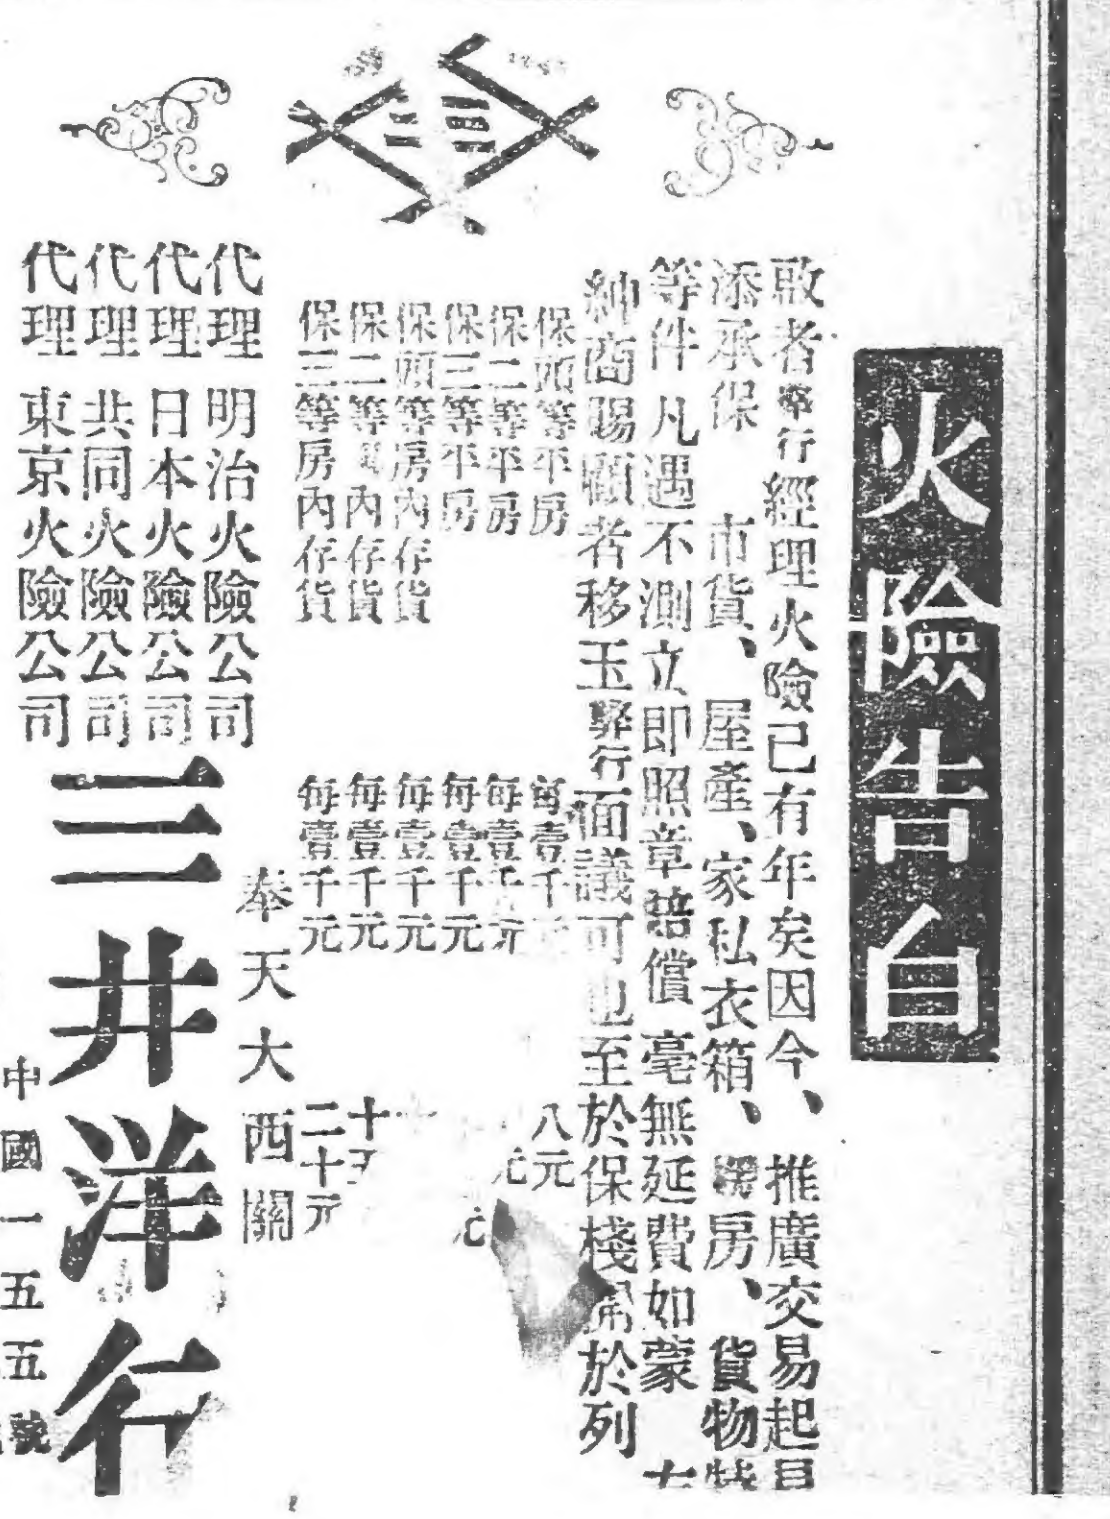 火險告白
啟者敝行經理火險已有年矣因今、推廣交易起見
添承保 市貨、屋產、家私衣箱、 房、貨物
等件凡遇不測立即照章賠償毫無延費如蒙
紳商賜顧者移玉敝行面議可也至於保棧 於列
保頭等平房 每壹千 八元
保二等平房 每壹千元 元
保三等平房 每壹千元 元
保頭等房內存貨 每壹千元
保二等 內存貨 每壹千元 十五
保三等房內存貨 每壹千元 二十元
三
奉天大西關
代理 明治火險公司
代理 日本火險公司
代理 共同火險公司
代理 東京火險公司
三井洋行
中國一五五號